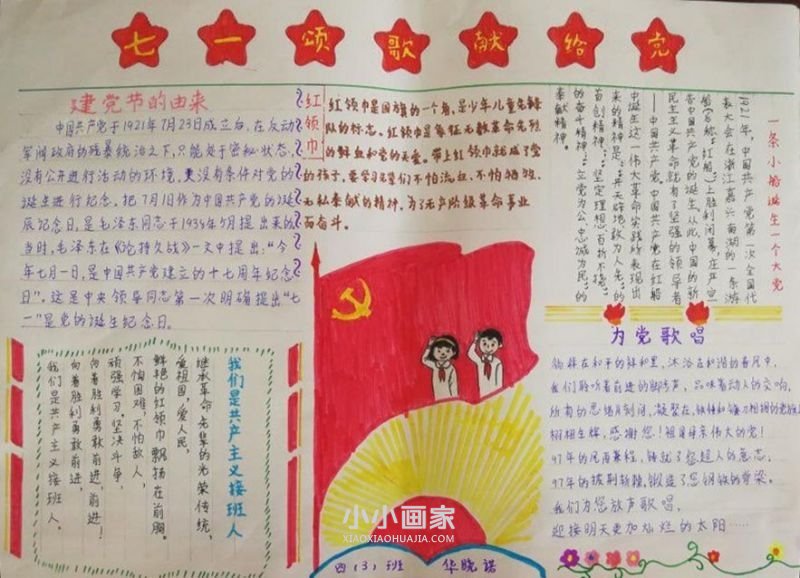 七一颂歌献给党
建党节的由来
中国共产党于1921年7月23日成立后,在反动
军阀政府的残暴统治之下,只能处于密秘状态,
没有公开进行活动的环境,更没有条件对党的
诞生进行纪念。把7月1日作为中国共产党的诞
辰纪念日,是毛泽东同志于1938年5月提出来的
当时,毛泽东在《论持久战》一文中提出:“今
年七月一日,是中国共产党建立的十七周年纪念
日”,这是中央领导同志第一次明确提出“七
一”是党的诞生纪念日。
红领巾
红领巾是国旗的一个角,是少年儿童先锋
队的标志。红领巾是象征无数革命先烈
的鲜血和党的关爱。带上红领巾就成了党
的孩子,要学习先辈们不怕流血、不怕牺牲、
无私奉献的精神,为了无产阶级革命事业
而奋斗。
一条小船诞生一个大党
1921年,中国共产党第一次全国代
表大会在浙江嘉兴南湖的一条游
船(后称“红船”)上胜利闭幕,庄严宣
告中国共产党的诞生。从此,中国的新
民主主义革命就有了坚强的领导者
——中国共产党。中国共产党在红船
中诞生这一伟大革命实践所表现出
来的精神是:“开天辟地敢为人先”的
首创精神;“坚定理想、百折不挠”
的奋斗精神;“立党为公、忠诚为民”的
奉献精神。
我们是共产主义接班人
继承革命先辈的光荣传统,
爱祖国,爱人民,
鲜艳的红领巾飘扬在前胸。
不怕困难,不怕敌人,
顽强学习,坚决斗争,
向着胜利勇敢前进,前进!
向着胜利勇敢前进,
我们是共产主义接班人。
为党歌唱
徜徉在和平的鲜和里,沐浴在和谐的春风中,
我们聆听着前进的脚步声,品味着动人的交响,
所有的思绪片刻间,凝聚在,铁锤和镰刀相拥的党旗
栩栩生辉,感谢您!祖国母亲伟大的党!
97年的风雨兼程,铸就了您超人的意志,
97年的披荆斩棘,锻造了您钢铁的脊梁。
我们为您放声歌唱,
迎接明天更加灿烂的太阳……
小小画家
XIAOXIAOHUAJIA.COM
四(3)班 华晓诺